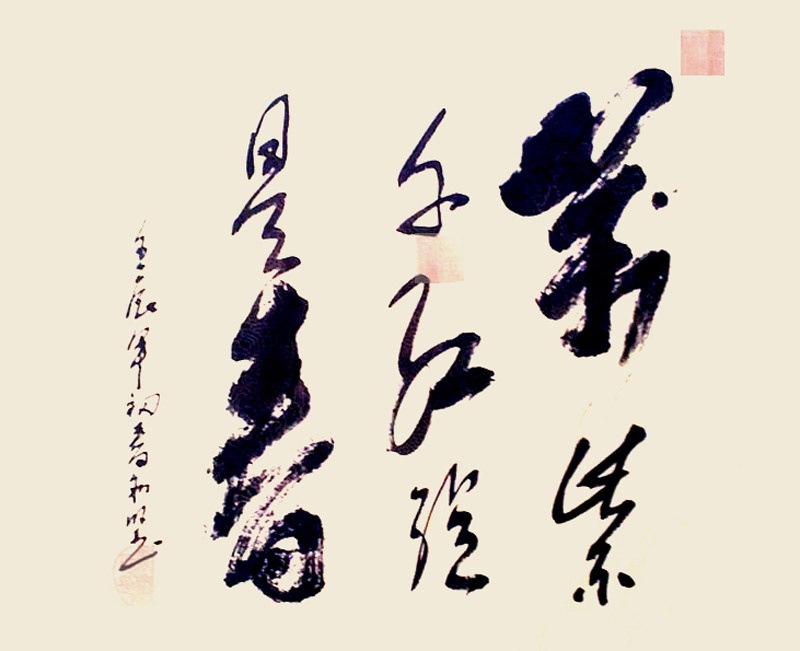 萬紫
千紅總
是春
壬辰年初春明书